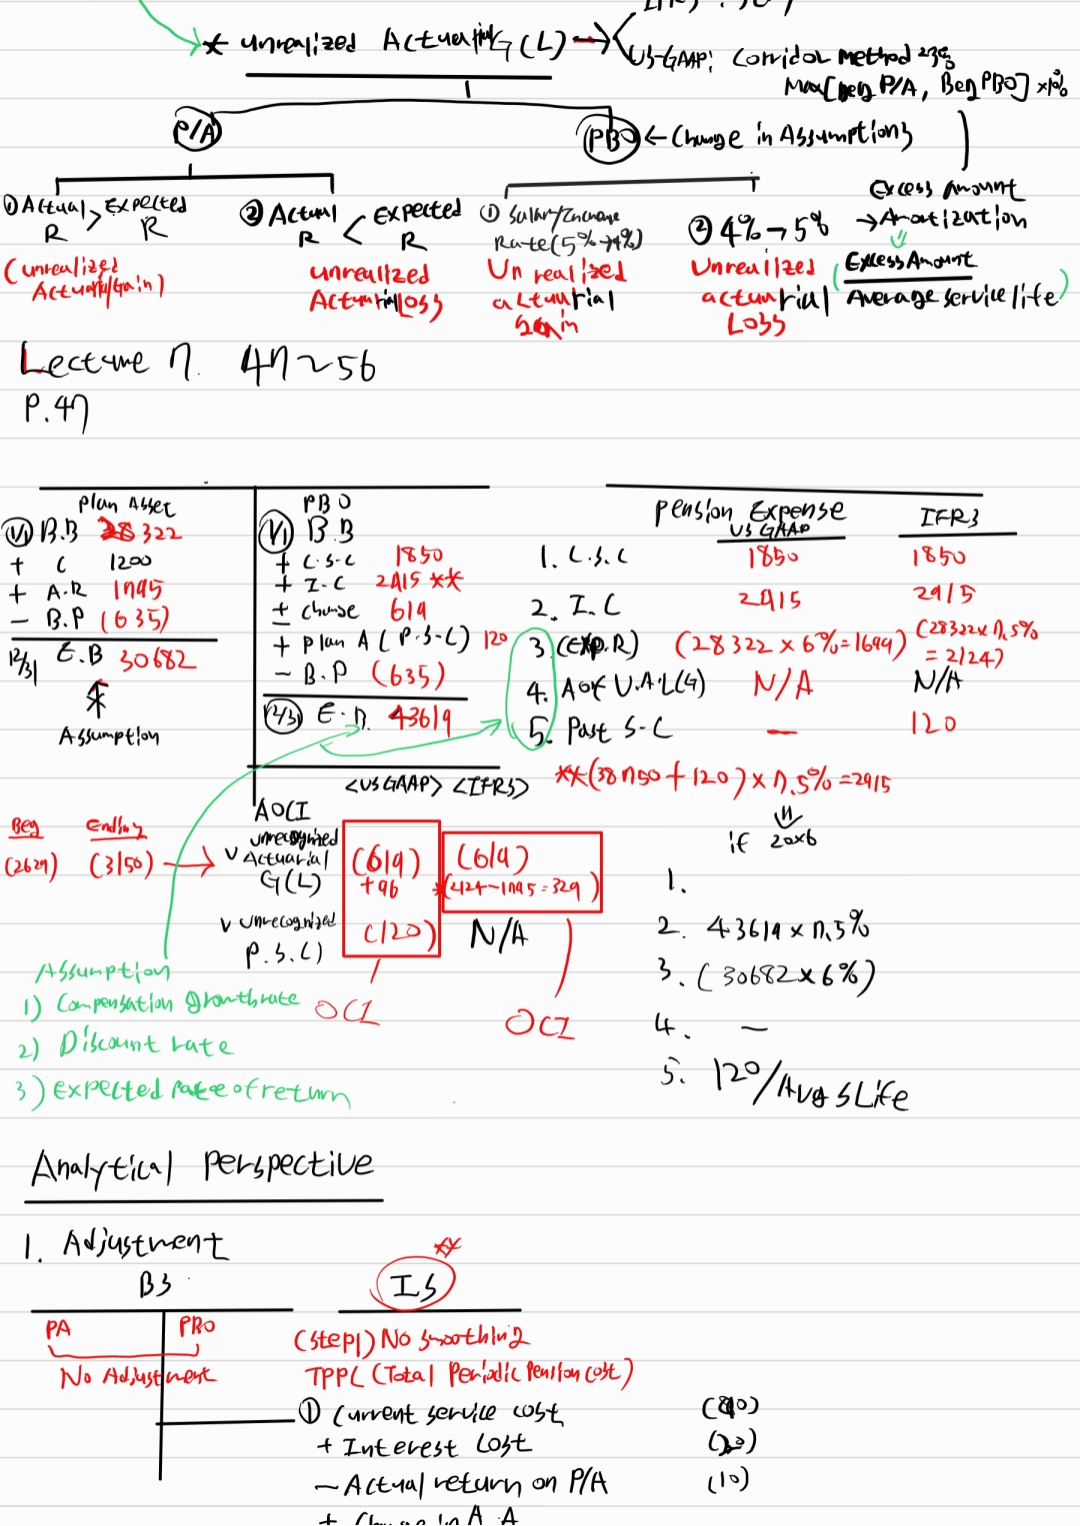 * unrealized Actuarial G(L) → <
US-GAAP: Corridor method
Max[Beg P/A, Beg PBO] x10%
P/A
PBO ← Change in Assumptions
① Actual R > Expected R
(unrealized Actuarial Gain)
② Actual R < Expected R
unrealized Actuarial Loss
① Salary Increase Rate (5%→4%)
Unrealized actuarial gain
② 4%→5%
Unrealized actuarial Loss
Excess Amount
→ Amortization
(Excess Amount / Average service life)
Lecture 7. 47~56
P.47
Plan Asset
1/1 B.B 28322
+ C 1200
+ A.R 1795
- B.P (635)
12/31 E.B 30682
Assumption
PBO
1/1 B.B
+ C.S.C 1850
+ I.C 2915 **
± change 619
+ Plan A (P.S.C) 120
- B.P (635)
12/31 E.B. 43619
Pension Expense
US GAAP IFRS
1. C.S.C 1850 1850
2. I.C 2915 2915
3. (Exp.R) (28322 x 6% = 1699) (28322 x 7.5% = 2124)
4. A of U.A.L(G) N/A N/A
5. Past S-C — 120
**(38750+120) x 7.5% = 2915
<US GAAP> <IFRS>
AOCI
Beg Ending
(2629) (3150) →
v unrecognized Actuarial G(L) (619) +96 (619) *(2124-1795=329)
v unrecognized P.S.C) (120) N/A
OCI
OCI
if 20x6
1.
2. 43619 x 7.5%
3. (30682 x 6%)
4. —
5. 120/Avg S Life
Assumption
1) Compensation growth rate
2) Discount rate
3) Expected rate of return
Analytical Perspective
1. Adjustment
BS
IS **
PA PBO
No Adjustment
(Step1) No smoothing
TPPC (Total Periodic Pension cost)
① Current service cost
+ Interest Cost
- Actual return on P/A (10)